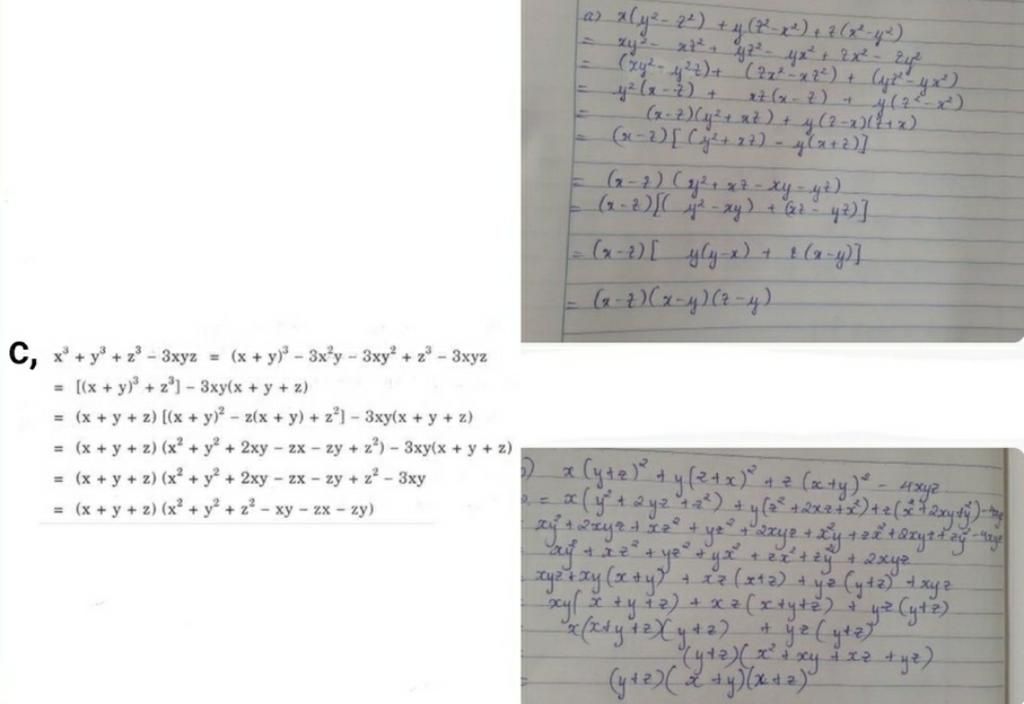 a) x(y² - z²) + y(z² - x²) + z(x² - y²)
= xy² - xz² + yz² - yx² + zx² - zy²
= (xy² - y²z) + (zx² - xz²) + (yz² - yx²)
= y²(x - z) + xz(x - z) + y(z² - x²)
= (x - z)(y² + xz) + y(z - x)(z + x)
= (x - z)[(y² + xz) - y(x + z)]
= (x - z)(y² + xz - xy - yz)
= (x - z)[(y² - xy) + (xz - yz)]
= (x - z)[ y(y - x) + z(x - y)]
= (x - z)(x - y)(z - y)
C, x³ + y³ + z³ - 3xyz = (x + y)³ - 3x²y - 3xy² + z³ - 3xyz
= [(x + y)³ + z³] - 3xy(x + y + z)
= (x + y + z) [(x + y)² - z(x + y) + z²] - 3xy(x + y + z)
= (x + y + z) (x² + y² + 2xy - zx - zy + z²) - 3xy(x + y + z)
= (x + y + z) (x² + y² + 2xy - zx - zy + z² - 3xy
= (x + y + z) (x² + y² + z² - xy - zx - zy)
) x(y+z)² + y(z+x)² + z(x+y)² - 4xyz
= x(y² + 2yz + z²) + y(z² + 2xz + x²) + z(x² + 2xy + y²) - 4xyz
xy² + 2xyz + xz² + yz² + 2xyz + x²y + zx² + 2xyz + zy² - 4xyz
xy² + xz² + yz² + yx² + zx² + zy² + 2xyz
xyz + xy(x+y) + xz(x+z) + yz(y+z) + xyz
xy(x + y + z) + xz(x+y+z) + yz(y+z)
x(x+y+z)(y+z) + yz(y+z)
(y+z)(x² + xy + xz + yz)
= (y+z)(x + y)(x+z)